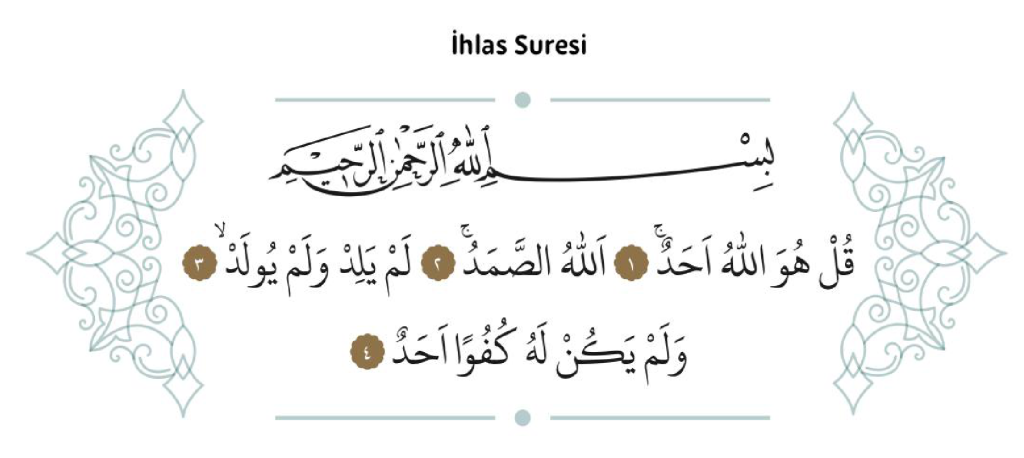 İhlas Suresi
بِسْمِ اللّٰهِ الرَّحْمٰنِ الرَّحِيمِ
قُلْ هُوَ اللّٰهُ اَحَدٌۚ ﴿١﴾ اَللّٰهُ الصَّمَدُۚ ﴿٢﴾ لَمْ يَلِدْ وَلَمْ يُولَدْۙ ﴿٣﴾
وَلَمْ يَكُنْ لَهُ كُفُوًا اَحَدٌ ﴿٤﴾